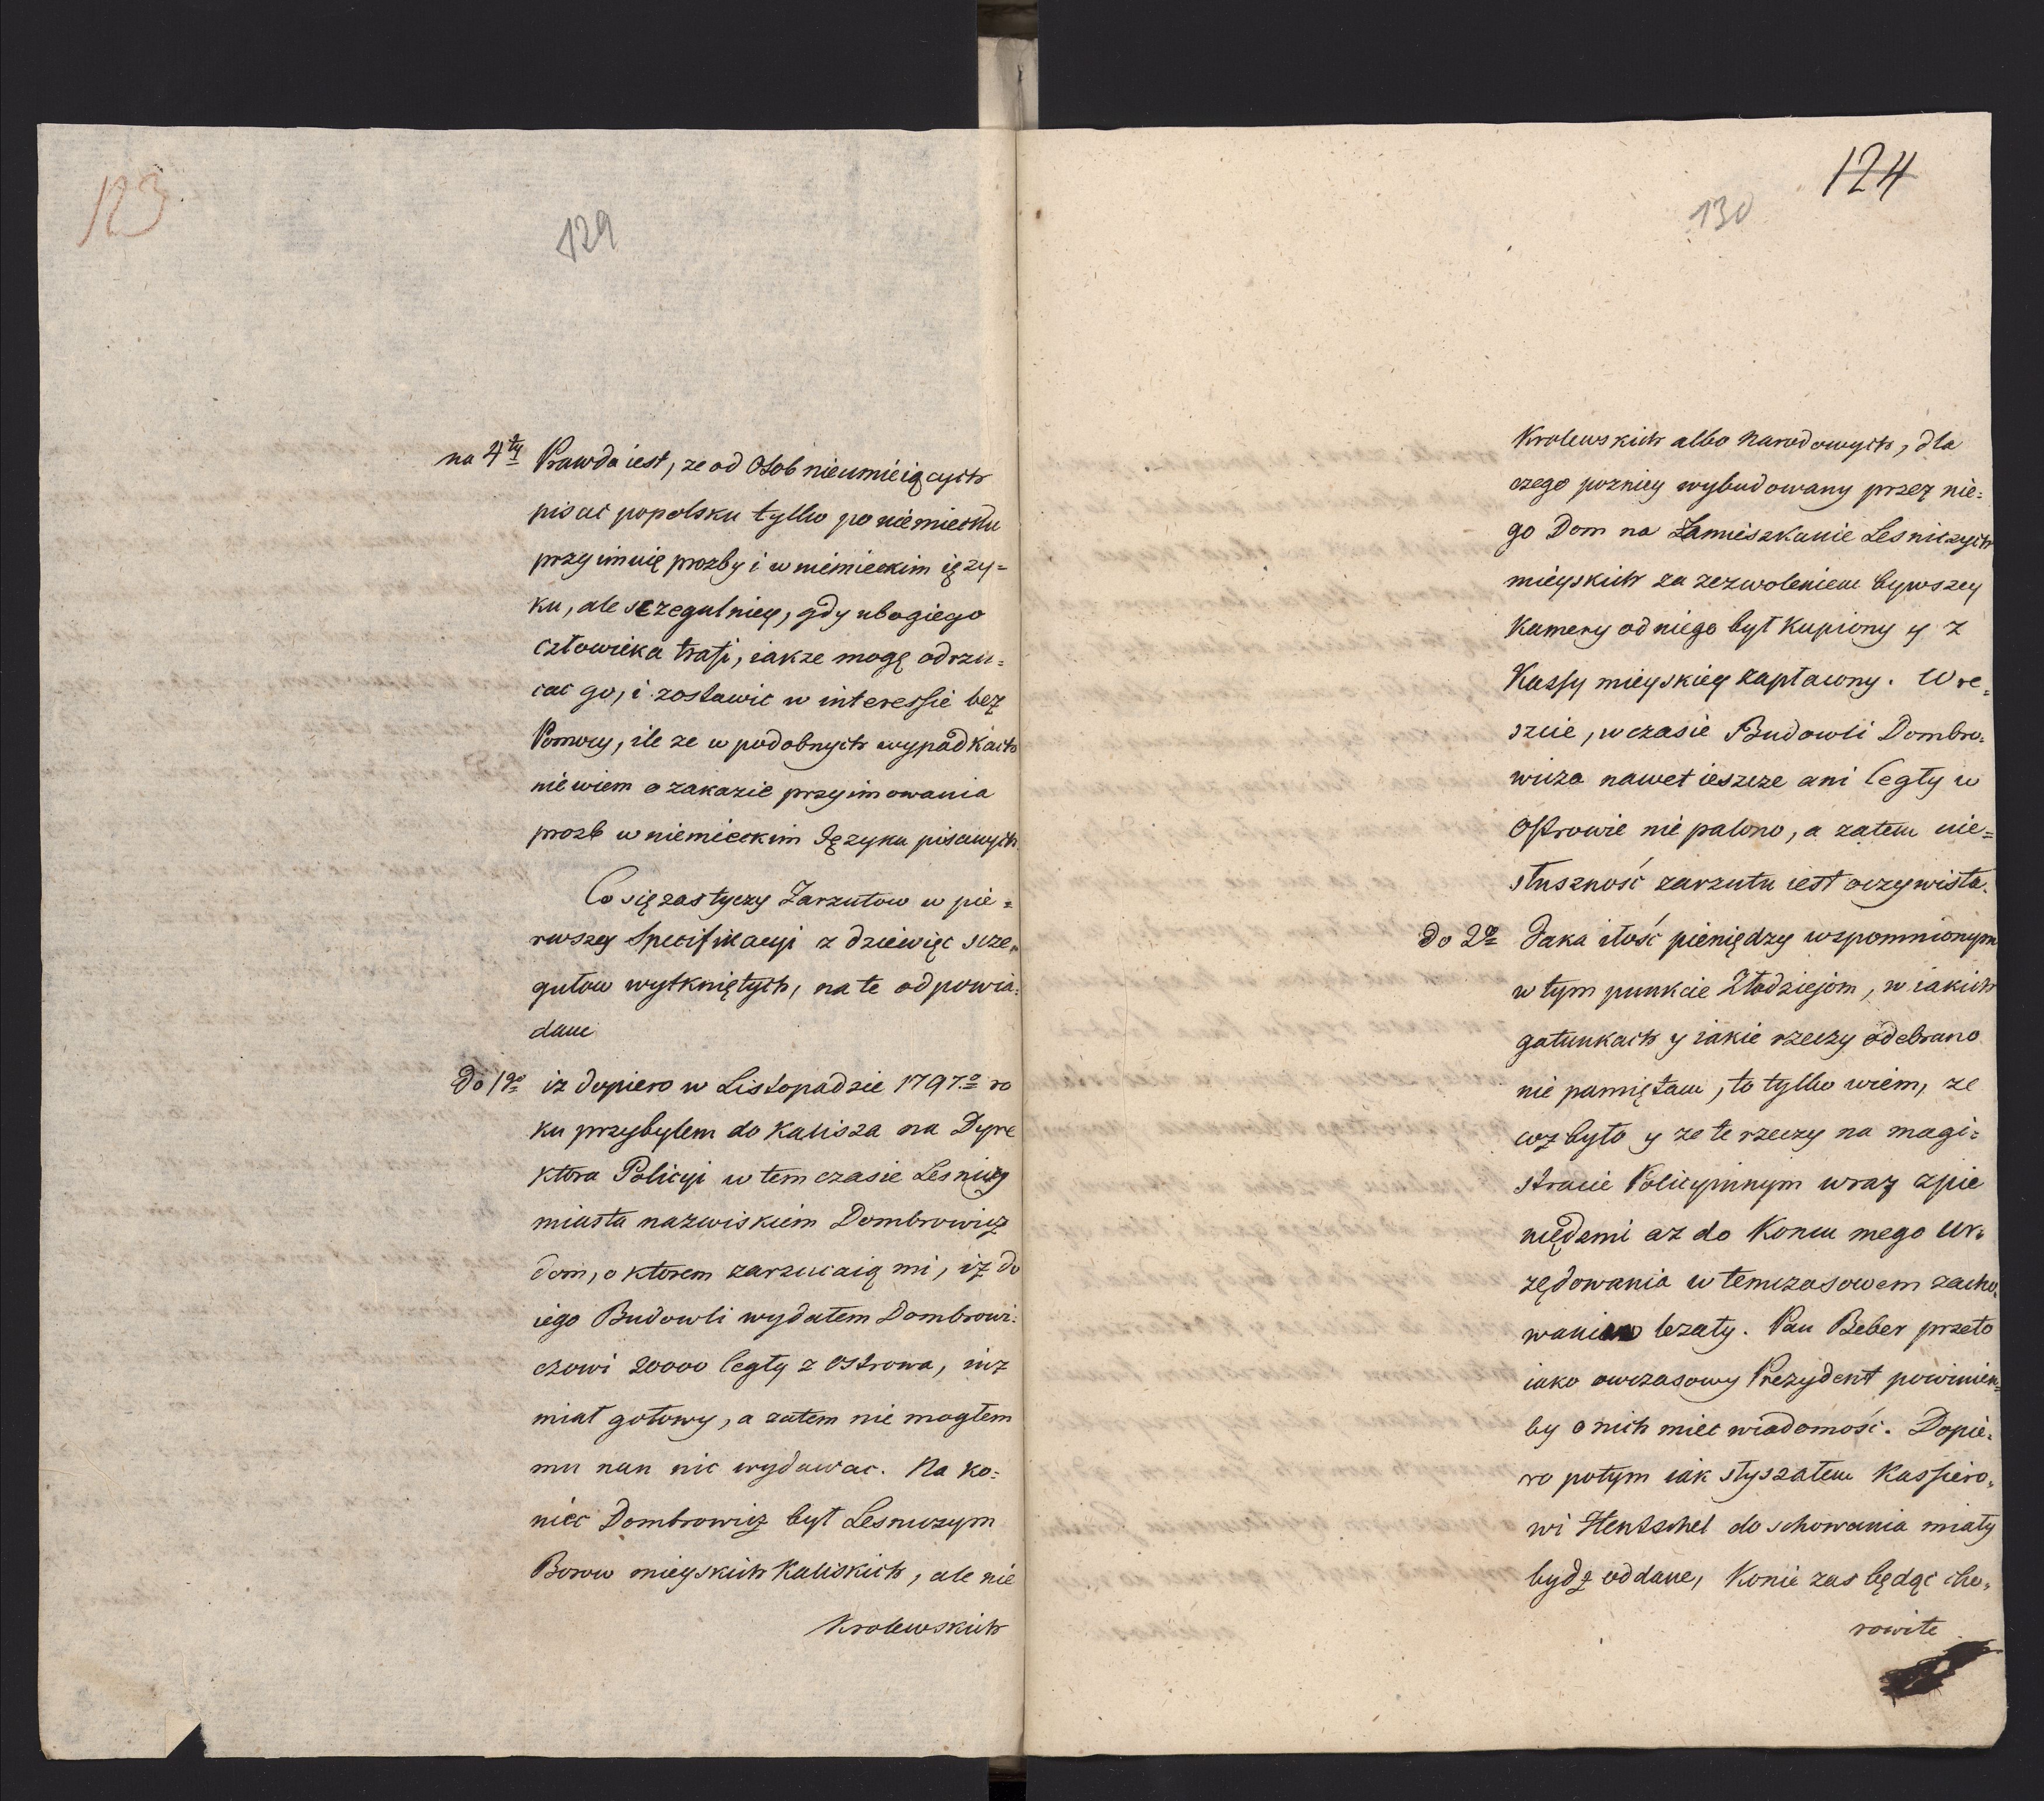 123
129
na 4ty Prawda iest, ze od Osob nieumieiących
pisac popolsku tylko po niemiecku
przyimuię prozby i w niemieckim ięzy=
ku, ale sczegulniey, gdy ubogiego
człowieka trafi, iakze mogę odrzu=
cac go, i zostawic w interessie bez
Pomocy, ile ze w podobnych wypadkach
niewiem o zakazie przyimowania
prozb w niemieckim Języku pisanych
Co się zas tyczy Zarzutow w pie=
rwszey Specifikacyi z dziewięc scze=
gułow wytkniętych, na te odpowia=
dam
Do 1go iz dopiero w Listopadzie 1797o ro
ku przybyłem do Kalisza na Dyre
ktora Policyi w tem czasie Lesniczy
miasta nazwiskiem Dombrowicz
dom, o ktorem zarzucaią mi, iz do
iego Budowli wydałem Dombrowi=
czowi 20000 Cegły z Ostrowa, iuz
miał gotowy, a zatem nie mogłem
mu nan nic wydawac. Na ko=
niec Dombrowicz był Lesniczym
Borow mieyskich Kaliskich, ale nie
Krolewskich
124
130
Krolewskich albo Narodowych, dla
czego pozniey wybudowany przez nie=
go Dom na Zamieszkanie Lesniczych
mieyskich za zezwoleniem bywszey
Kamery od niego był kupiony y z
Kassy mieyskiey zapłacony. Wre=
szcie, w czasie Budowli Dombro=
wicza nawet ieszcze ani Cegły w
Ostrowie nie palono, a zatem nie=
słuszność zarzutu iest oczywista.
Do 2o Jaka ilość pieniędzy wspomnionym
w tym punkcie Złodziejom, w iakich
gatunkach y iakie rzeczy odebrano
nie pamiętam, to tylko wiem, ze
coz było y ze te rzeczy na magi=
stracie Policyinym wraz zpie
niędzmi az do Koncu mego Ur=
zędowania w temczasowem zacho=
waniu lezały. Pan Beber przeto
iako owczasowy Prezydent powinien=
by o nich miec wiadomość. Dopie=
ro potym iak słyszałem Kassiero=
wi Hentschel do schowania miały
bydz oddane, Konie zas będąc cho=
rowite